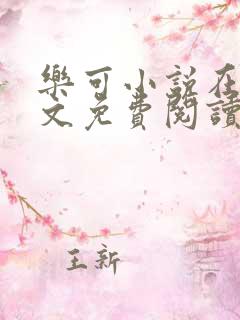 樂可小說在
文免費閱讀
王新